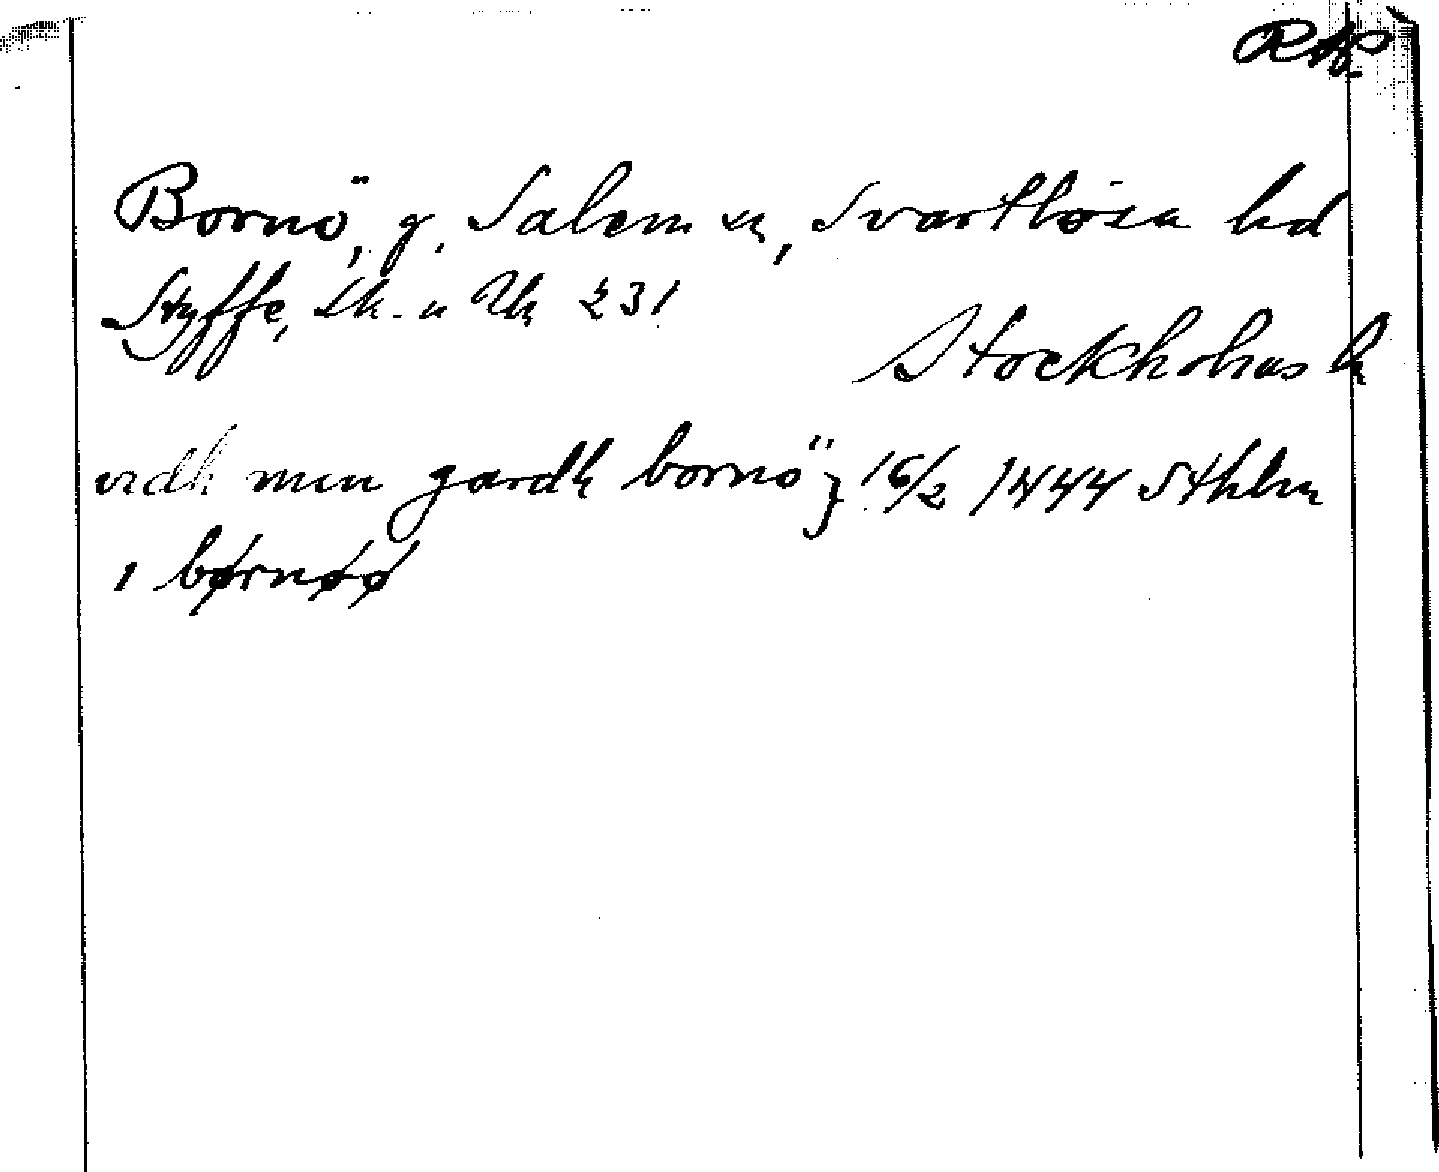 RAP
Bornö, g. Salem sn, Svartlösa hd
Styffe, Sk. u Un 231
Stockholms l
vidh min gardh bornö } 16/2 1444 Sthlm
i børnøø